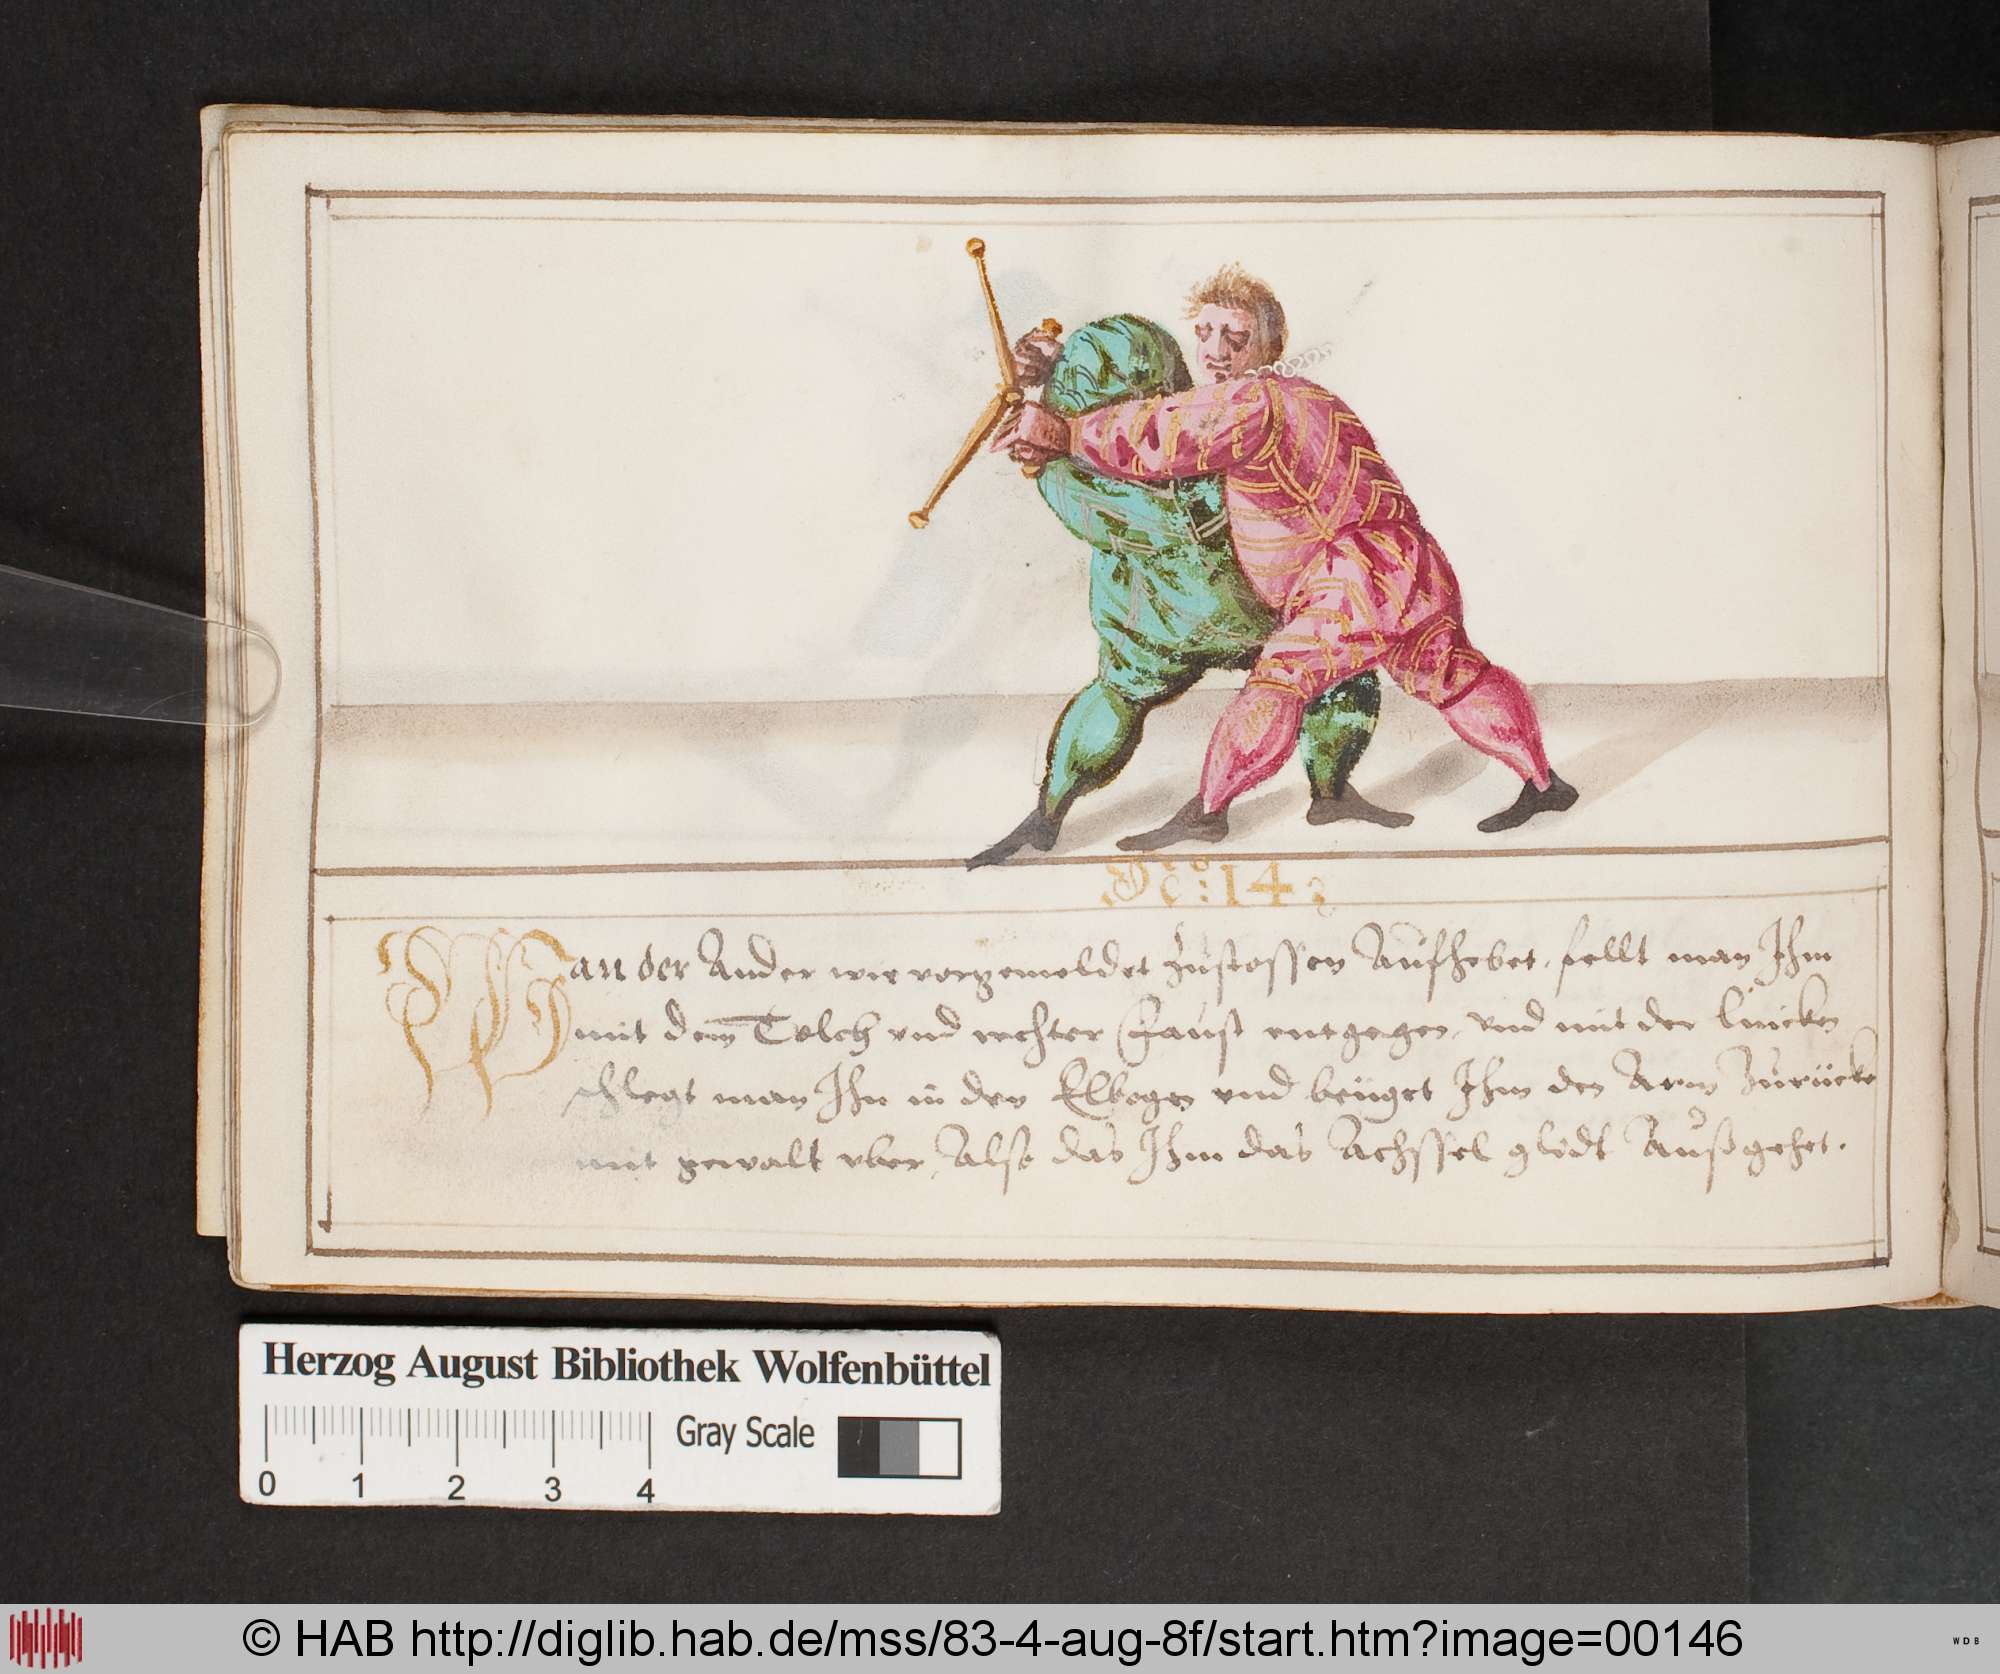 No: 14
Wan der Ander wie vorgemeldet Zustossen Aufhebet, fellt man Ihm
mit dem Tolch vnd rechter Faust entgegen, vnd mit der lincken
schlegt man Ihn in den Elbogen vnd beüget Ihm den Arm Zurücke
mit gewalt vber, Also das Ihm das Achssel glidt Außgehet.
Herzog August Bibliothek Wolfenbüttel
Gray Scale
0 1 2 3 4
© HAB http://diglib.hab.de/mss/83-4-aug-8f/start.htm?image=00146
WDB